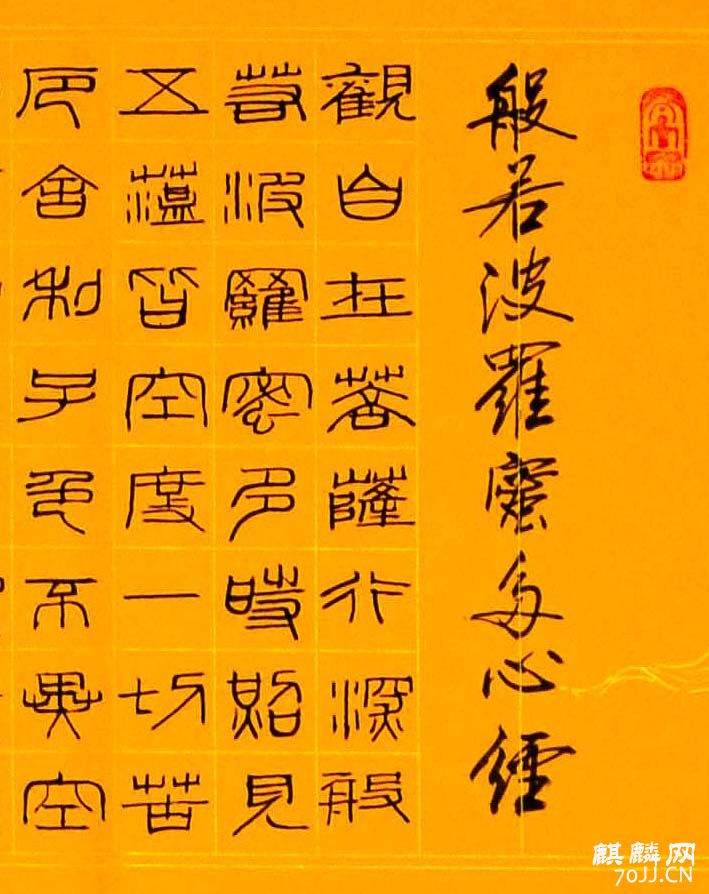 般若波羅蜜多心經
觀自在菩薩行深般
若波羅蜜多時照見
五蘊皆空度一切苦
厄舍利子色不異空
麒麟网
70JJ.CN